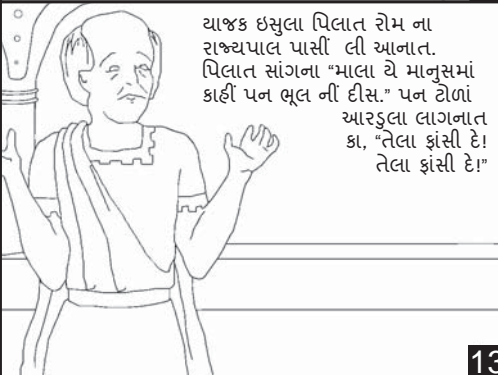 યાજક ઇસુલા પિલાત રોમ ના
રાજ્યપાલ પાસીં લી આનાત.
પિલાત સાંગના “માલા યે માનુસમાં
કાહીં પન ભૂલ નીં દીસ.” પન ટોળાં
આરડુલા લાગનાત
કા, “તેલા ફાંસી દે!
તેલા ફાંસી દે!”
13